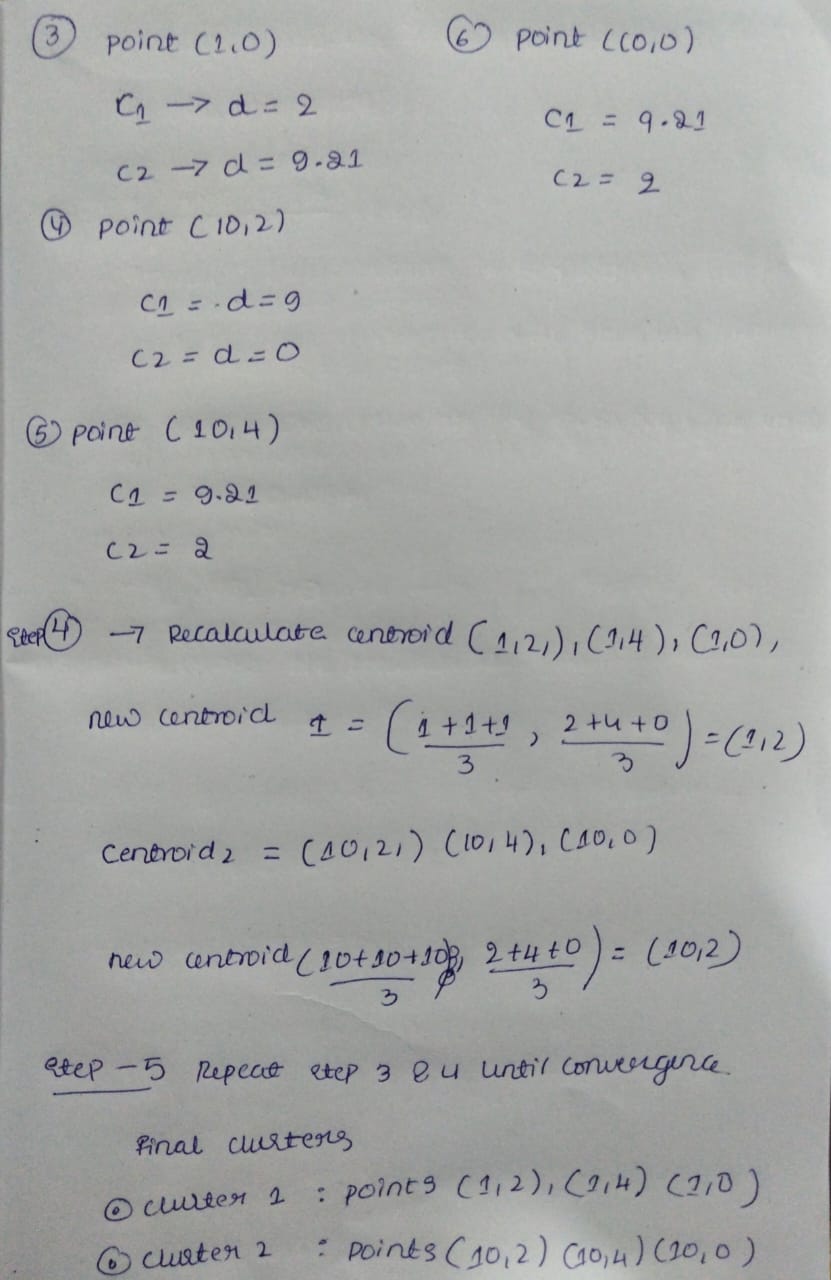 ③ point (1,0)
C1 → d = 2
C2 → d = 9.21
④ point (10,2)
C1 = d = 9
C2 = d = 0
⑤ point (10,4)
C1 = 9.21
C2 = 2
⑥ point (10,0)
C1 = 9.21
C2 = 2
Step ④ → Recalculate centroid (1,2,), (1,4), (1,0),
new centroid 1 = (1+1+1/3, 2+4+0/3) = (1,2)
Centroid 2 = (10,2,) (10,4), (10,0)
new centroid (10+10+10/3, 2+4+0/3) = (10,2)
Step - 5 Repeat step 3 & 4 until convergence.
Final clusters
cluster 1 : points (1,2), (1,4) (1,0)
cluster 2 : points (10,2) (10,4) (10,0)